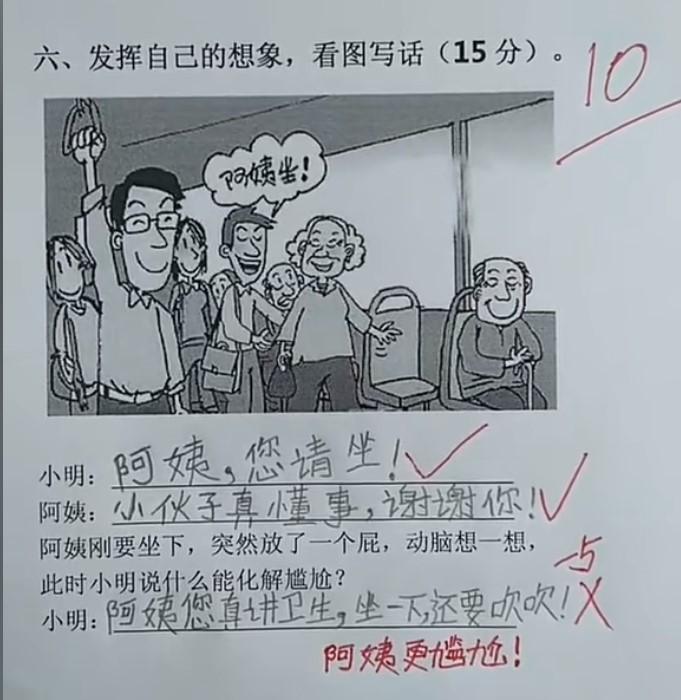 六、发挥自己的想象，看图写话（15分）。
10
阿姨坐！
小明：阿姨，您请坐！
阿姨：小伙子真懂事，谢谢你！
阿姨刚要坐下，突然放了一个屁，动脑想一想，
-5
此时小明说什么能化解尴尬？
小明：阿姨您真讲卫生，坐一下，还要吹吹！
阿姨更尴尬！